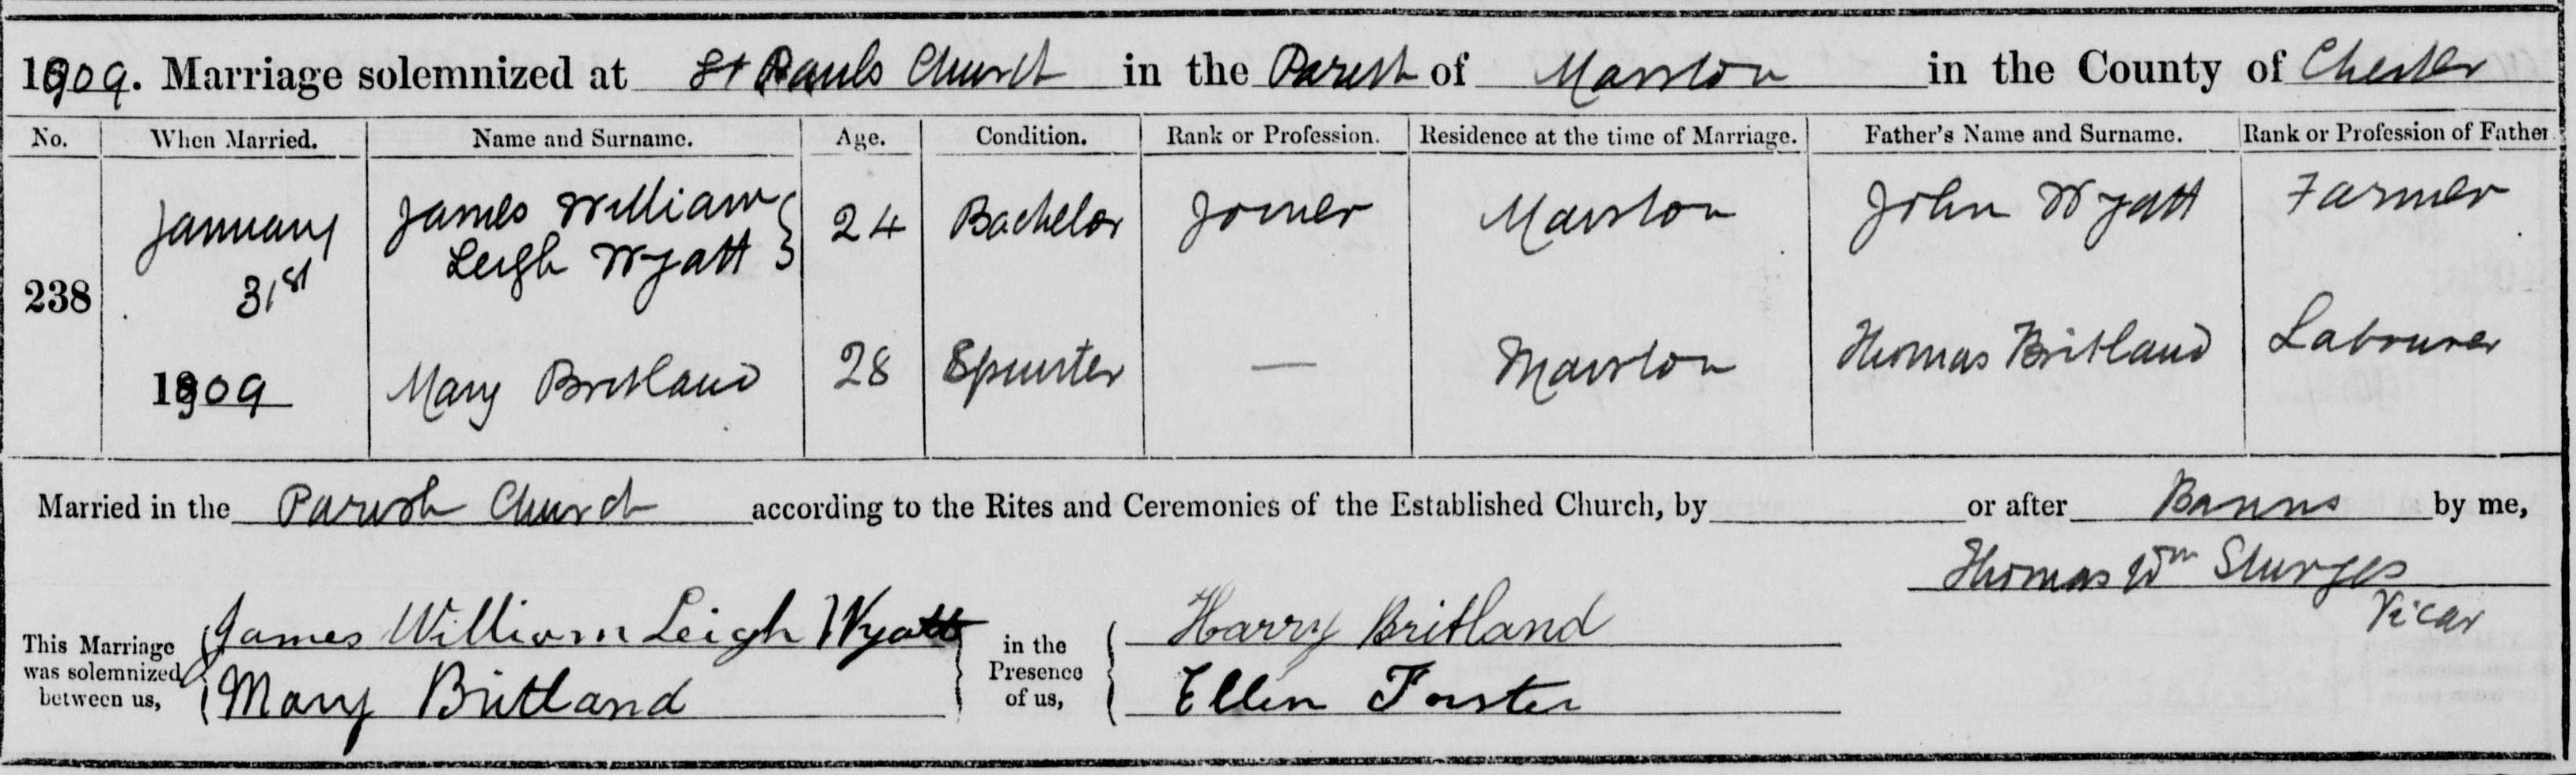 1909. Marriage solemnized at St Pauls Church in the Parish of Marston in the County of Chester
No. When Married. Name and Surname. Age. Condition. Rank or Profession. Residence at the time of Marriage. Father's Name and Surname. Rank or Profession of Father
238
January
31st
1909
James William
Leigh Wyatt
24 Bachelor Joiner Marston John Wyatt Farmer
Mary Britland 28 Spinster — Marston Thomas Britland Labourer
Married in the Parish Church according to the Rites and Ceremonies of the Established Church, by or after Banns by me,
Thomas Wm Sturges
Vicar
This Marriage
was solemnized
between us,
James William Leigh Wyatt
Mary Britland
in the
Presence
of us,
Harry Britland
Ellen Forster